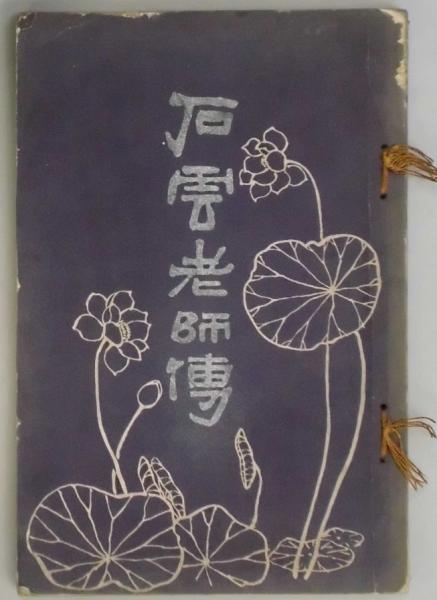 石雲老師傳